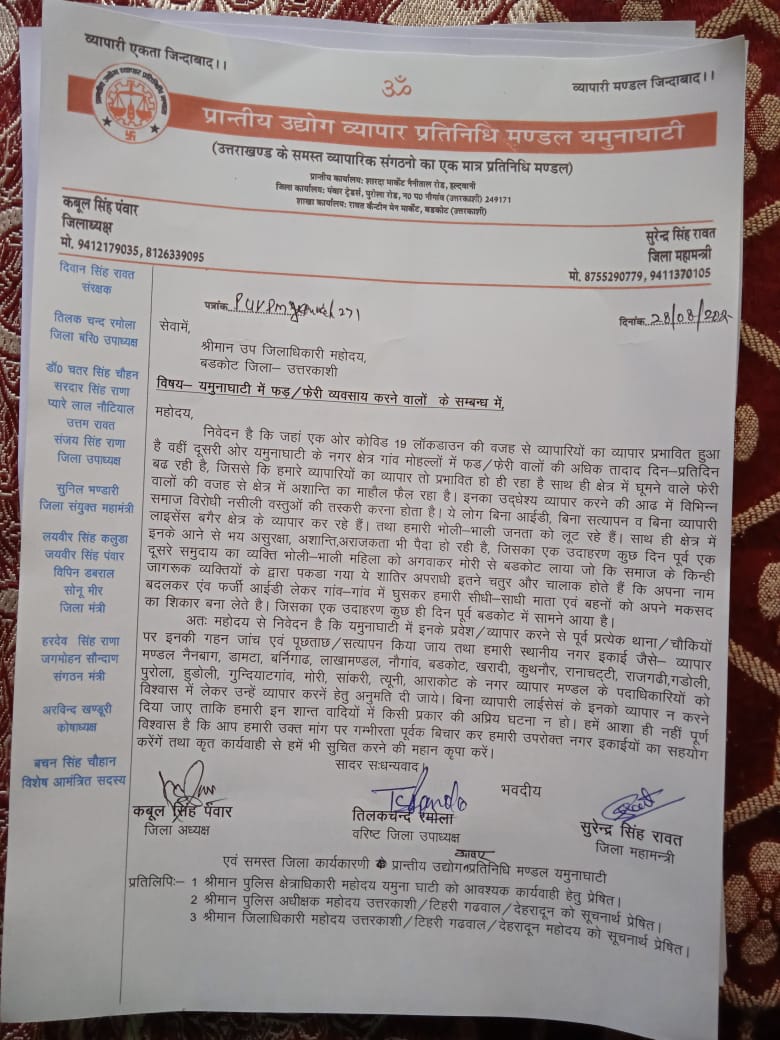 व्यापारी एकता जिन्दाबाद।।
ॐ
व्यापारी मण्डल जिन्दाबाद।।
प्रान्तीय उद्योग व्यापार प्रतिनिधि मण्डल यमुनाघाटी
(उत्तराखण्ड के समस्त व्यापारिक संगठनो का एक मात्र प्रतिनिधि मण्डल)
प्रान्तीय कार्यालय: शारदा मार्केट नैनीताल रोड़, हल्द्वानी
जिला कार्यालय: पंवार ट्रेडर्स, पुरोला रोड, न० प० नौगांव (उत्तरकाशी) 249171
शाखा कार्यालय: रावत कैन्टीन मेन मार्केट, बडकोट (उत्तरकाशी)
कबूल सिंह पंवार
जिलाध्यक्ष
मो. 9412179035, 8126339095
सुरेन्द्र सिंह रावत
जिला महामन्त्री
मो. 8755290779, 9411370105
दिवान सिंह रावत
संरक्षक
तिलक चन्द रमोला
जिला बरि0 उपाध्यक्ष
डॉ0 चतर सिंह चौहन
सरदार सिंह राणा
प्यारे लाल नौटियाल
उत्तम रावत
संजय सिंह राणा
जिला उपाध्यक्ष
सुनिल भण्डारी
जिला संयुक्त महामंत्री
लयवीर सिंह कलुडा
जयवीर सिंह पंवार
विपिन डबराल
सोनू मीर
जिला मंत्री
हरदेव सिंह राणा
जगमोहन सौन्दाण
संगठन मंत्री
अरविन्द खण्डूरी
कोषाध्यक्ष
बचन सिंह चौहान
विशेष आमंत्रित सदस्य
पत्रांक
271
दिनांक 28/08/
सेवामें,
श्रीमान उप जिलाधिकारी महोदय,
बडकोट जिला– उत्तरकाशी
विषय– यमुनाघाटी में फड़/फेरी व्यवसाय करने वालों के सम्बन्ध में,
महोदय,
निवेदन है कि जहां एक ओर कोविड 19 लॉकडाउन की वजह से व्यापारियों का व्यापार प्रभावित हुआ
है वहीं दूसरी ओर यमुनाघाटी के नगर क्षेत्र गांव मोहल्लों में फड/फेरी वालों की अधिक तादाद दिन–प्रतिदिन
बढ रही है, जिससे कि हमारे व्यापारियों का व्यापार तो प्रभावित हो ही रहा है साथ ही क्षेत्र में घूमने वाले फेरी
वालों की वजह से क्षेत्र में अशान्ति का माहौल फैल रहा है। इनका उद्धेश्य व्यापार करने की आढ में विभिन्न
समाज विरोधी नसीली वस्तुओं की तस्करी करना होता है। ये लोग बिना आईडी, बिना सत्यापन व बिना व्यापारी
लाइसेंस बगैर क्षेत्र के व्यापार कर रहे हैं। तथा हमारी भोली–भाली जनता को लूट रहे हैं। साथ ही क्षेत्र में
इनके आने से भय असुरक्षा, अशान्ति,अराजकता भी पैदा हो रही है, जिसका एक उदाहरण कुछ दिन पूर्व एक
दूसरे समुदाय का व्यक्ति भोली–भाली महिला को अगवाकर मोरी से बडकोट लाया जो कि समाज के किन्ही
जागरूक व्यक्तियों के द्वारा पकडा गया ये शातिर अपराधी इतने चतुर और चालाक होते हैं कि अपना नाम
बदलकर एंव फर्जी आईडी लेकर गांव–गांव में घुसकर हमारी सीधी–साधी माता एवं बहनों को अपने मकसद
का शिकार बना लेते है। जिसका एक उदाहरण कुछ ही दिन पूर्व बडकोट में सामने आया है।
अतः महोदय से निवेदन है कि यमुनाघाटी में इनके प्रवेश/व्यापार करने से पूर्व प्रत्येक थाना/चौकियों
पर इनकी गहन जांच एवं पूछताछ/सत्यापन किया जाय तथा हमारी स्थानीय नगर इकाई जैसे– व्यापार
मण्डल नैनबाग, डामटा, बर्निगाढ, लाखामण्डल, नौगांव, बडकोट, खरादी, कुथनौर, रानाचट्टी, राजगढी,गडोली,
पुरोला, हुडोली, गुन्दियाटगांव, मोरी, सांकरी, त्यूनी, आराकोट के नगर व्यापार मण्डल के पदाधिकारियों को
विश्वास में लेकर उन्हें व्यापार करनें हेतु अनुमति दी जाये। बिना व्यापारी लाईसेंस के इनको व्यापार न करने
दिया जाए ताकि हमारी इन शान्त वादियों में किसी प्रकार की अप्रिय घटना न हो। हमें आशा ही नहीं पूर्ण
विश्वास है कि आप हमारी उक्त मांग पर गम्भीरता पूर्वक बिचार कर हमारी उपरोक्त नगर इकाईयों का सहयोग
करेंगें तथा कृत कार्यवाही से हमें भी सुचित करने की महान कृपा करें।
सादर सःधन्यवाद
भवदीय
कबूल सिंह पंवार
जिला अध्यक्ष
तिलकचन्द रमोला
वरिष्ट जिला उपाध्यक्ष
सुरेन्द्र सिंह रावत
जिला महामन्त्री
एवं समस्त जिला कार्यकारणी प्रान्तीय उद्योग प्रतिनिधि मण्डल यमुनाघाटी
प्रतिलिपिः– 1 श्रीमान पुलिस क्षेत्राधिकारी महोदय यमुना घाटी को आवश्यक कार्यवाही हेतु प्रेषित।
2 श्रीमान पुलिस अधीक्षक महोदय उत्तरकाशी/टिहरी गढवाल/देहरादून को सूचनार्थ प्रेषित।
3 श्रीमान जिलाधिकारी महोदय उत्तरकाशी/टिहरी गढवाल/देहरादून महोदय को सूचनार्थ प्रेषित।